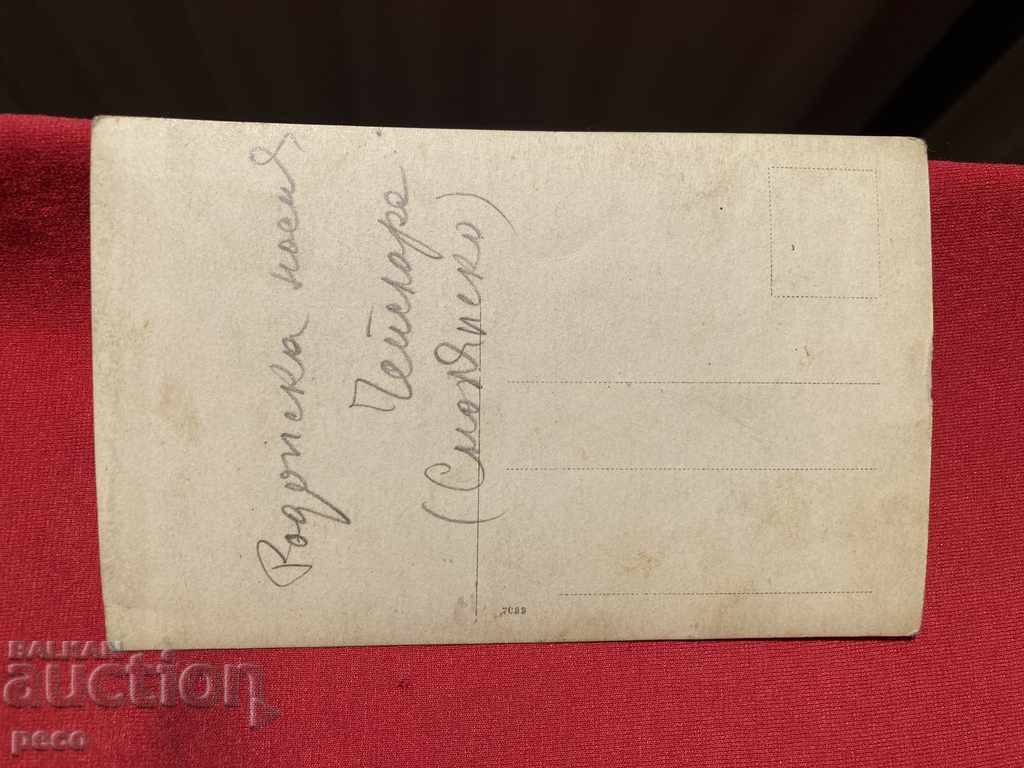 Родопска носия,
Чепеларе
(Смолянско)
7C89
BALKAN
auction
peco